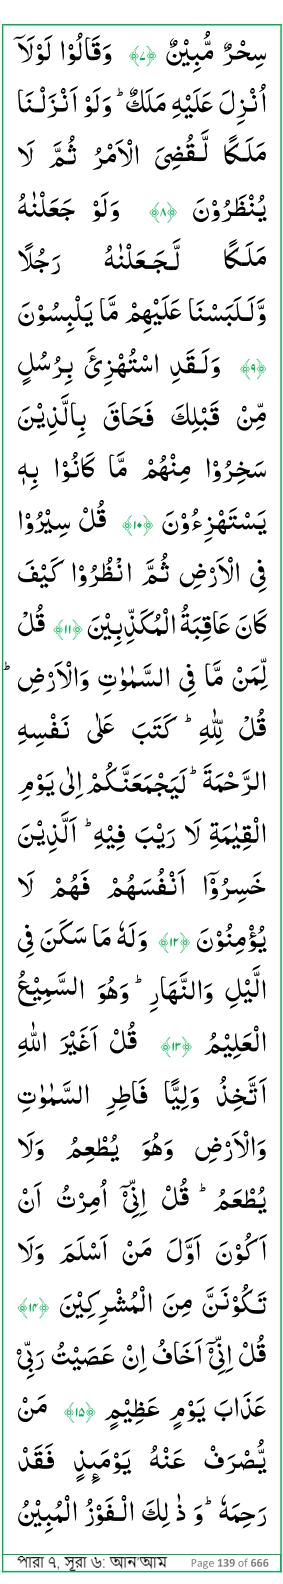 سِحْرٌ مُّبِيْنٌ ﴿٧﴾ وَقَالُوْا لَوْلَاۤ
اُنْزِلَ عَلَيْهِ مَلَكٌ ؕ وَلَوْ اَنْزَلْنَا
مَلَكًا لَّقُضِيَ الْاَمْرُ ثُمَّ لَا
يُنْظَرُوْنَ ﴿٨﴾ وَلَوْ جَعَلْنٰهُ
مَلَكًا لَّجَعَلْنٰهُ رَجُلًا
وَّلَلَبَسْنَا عَلَيْهِمْ مَّا يَلْبِسُوْنَ
﴿٩﴾ وَلَقَدِ اسْتُهْزِئَ بِرُسُلٍ
مِّنْ قَبْلِكَ فَحَاقَ بِالَّذِيْنَ
سَخِرُوْا مِنْهُمْ مَّا كَانُوْا بِهٖ
يَسْتَهْزِءُوْنَ ﴿١٠﴾ قُلْ سِيْرُوْا
فِي الْاَرْضِ ثُمَّ انْظُرُوْا كَيْفَ
كَانَ عَاقِبَةُ الْمُكَذِّبِيْنَ ﴿١١﴾ قُلْ
لِّمَنْ مَّا فِي السَّمٰوٰتِ وَالْاَرْضِ ؕ
قُلْ لِّلّٰهِ ؕ كَتَبَ عَلٰى نَفْسِهِ
الرَّحْمَةَ ؕ لَيَجْمَعَنَّكُمْ اِلٰى يَوْمِ
الْقِيٰمَةِ لَا رَيْبَ فِيْهِ ؕ اَلَّذِيْنَ
خَسِرُوْۤا اَنْفُسَهُمْ فَهُمْ لَا
يُؤْمِنُوْنَ ﴿١٢﴾ وَلَهٗ مَا سَكَنَ فِي
الَّيْلِ وَالنَّهَارِ ؕ وَهُوَ السَّمِيْعُ
الْعَلِيْمُ ﴿١٣﴾ قُلْ اَغَيْرَ اللّٰهِ
اَتَّخِذُ وَلِيًّا فَاطِرِ السَّمٰوٰتِ
وَالْاَرْضِ وَهُوَ يُطْعِمُ وَلَا
يُطْعَمُ ؕ قُلْ اِنِّيْۤ اُمِرْتُ اَنْ
اَكُوْنَ اَوَّلَ مَنْ اَسْلَمَ وَلَا
تَكُوْنَنَّ مِنَ الْمُشْرِكِيْنَ ﴿١٤﴾
قُلْ اِنِّيْۤ اَخَافُ اِنْ عَصَيْتُ رَبِّيْ
عَذَابَ يَوْمٍ عَظِيْمٍ ﴿١٥﴾ مَنْ
يُّصْرَفْ عَنْهُ يَوْمَىِٕذٍ فَقَدْ
رَحِمَهٗ ؕ وَذٰلِكَ الْفَوْزُ الْمُبِيْنُ
পারা ৭, সূরা ৬: আন'আম Page 139 of 666